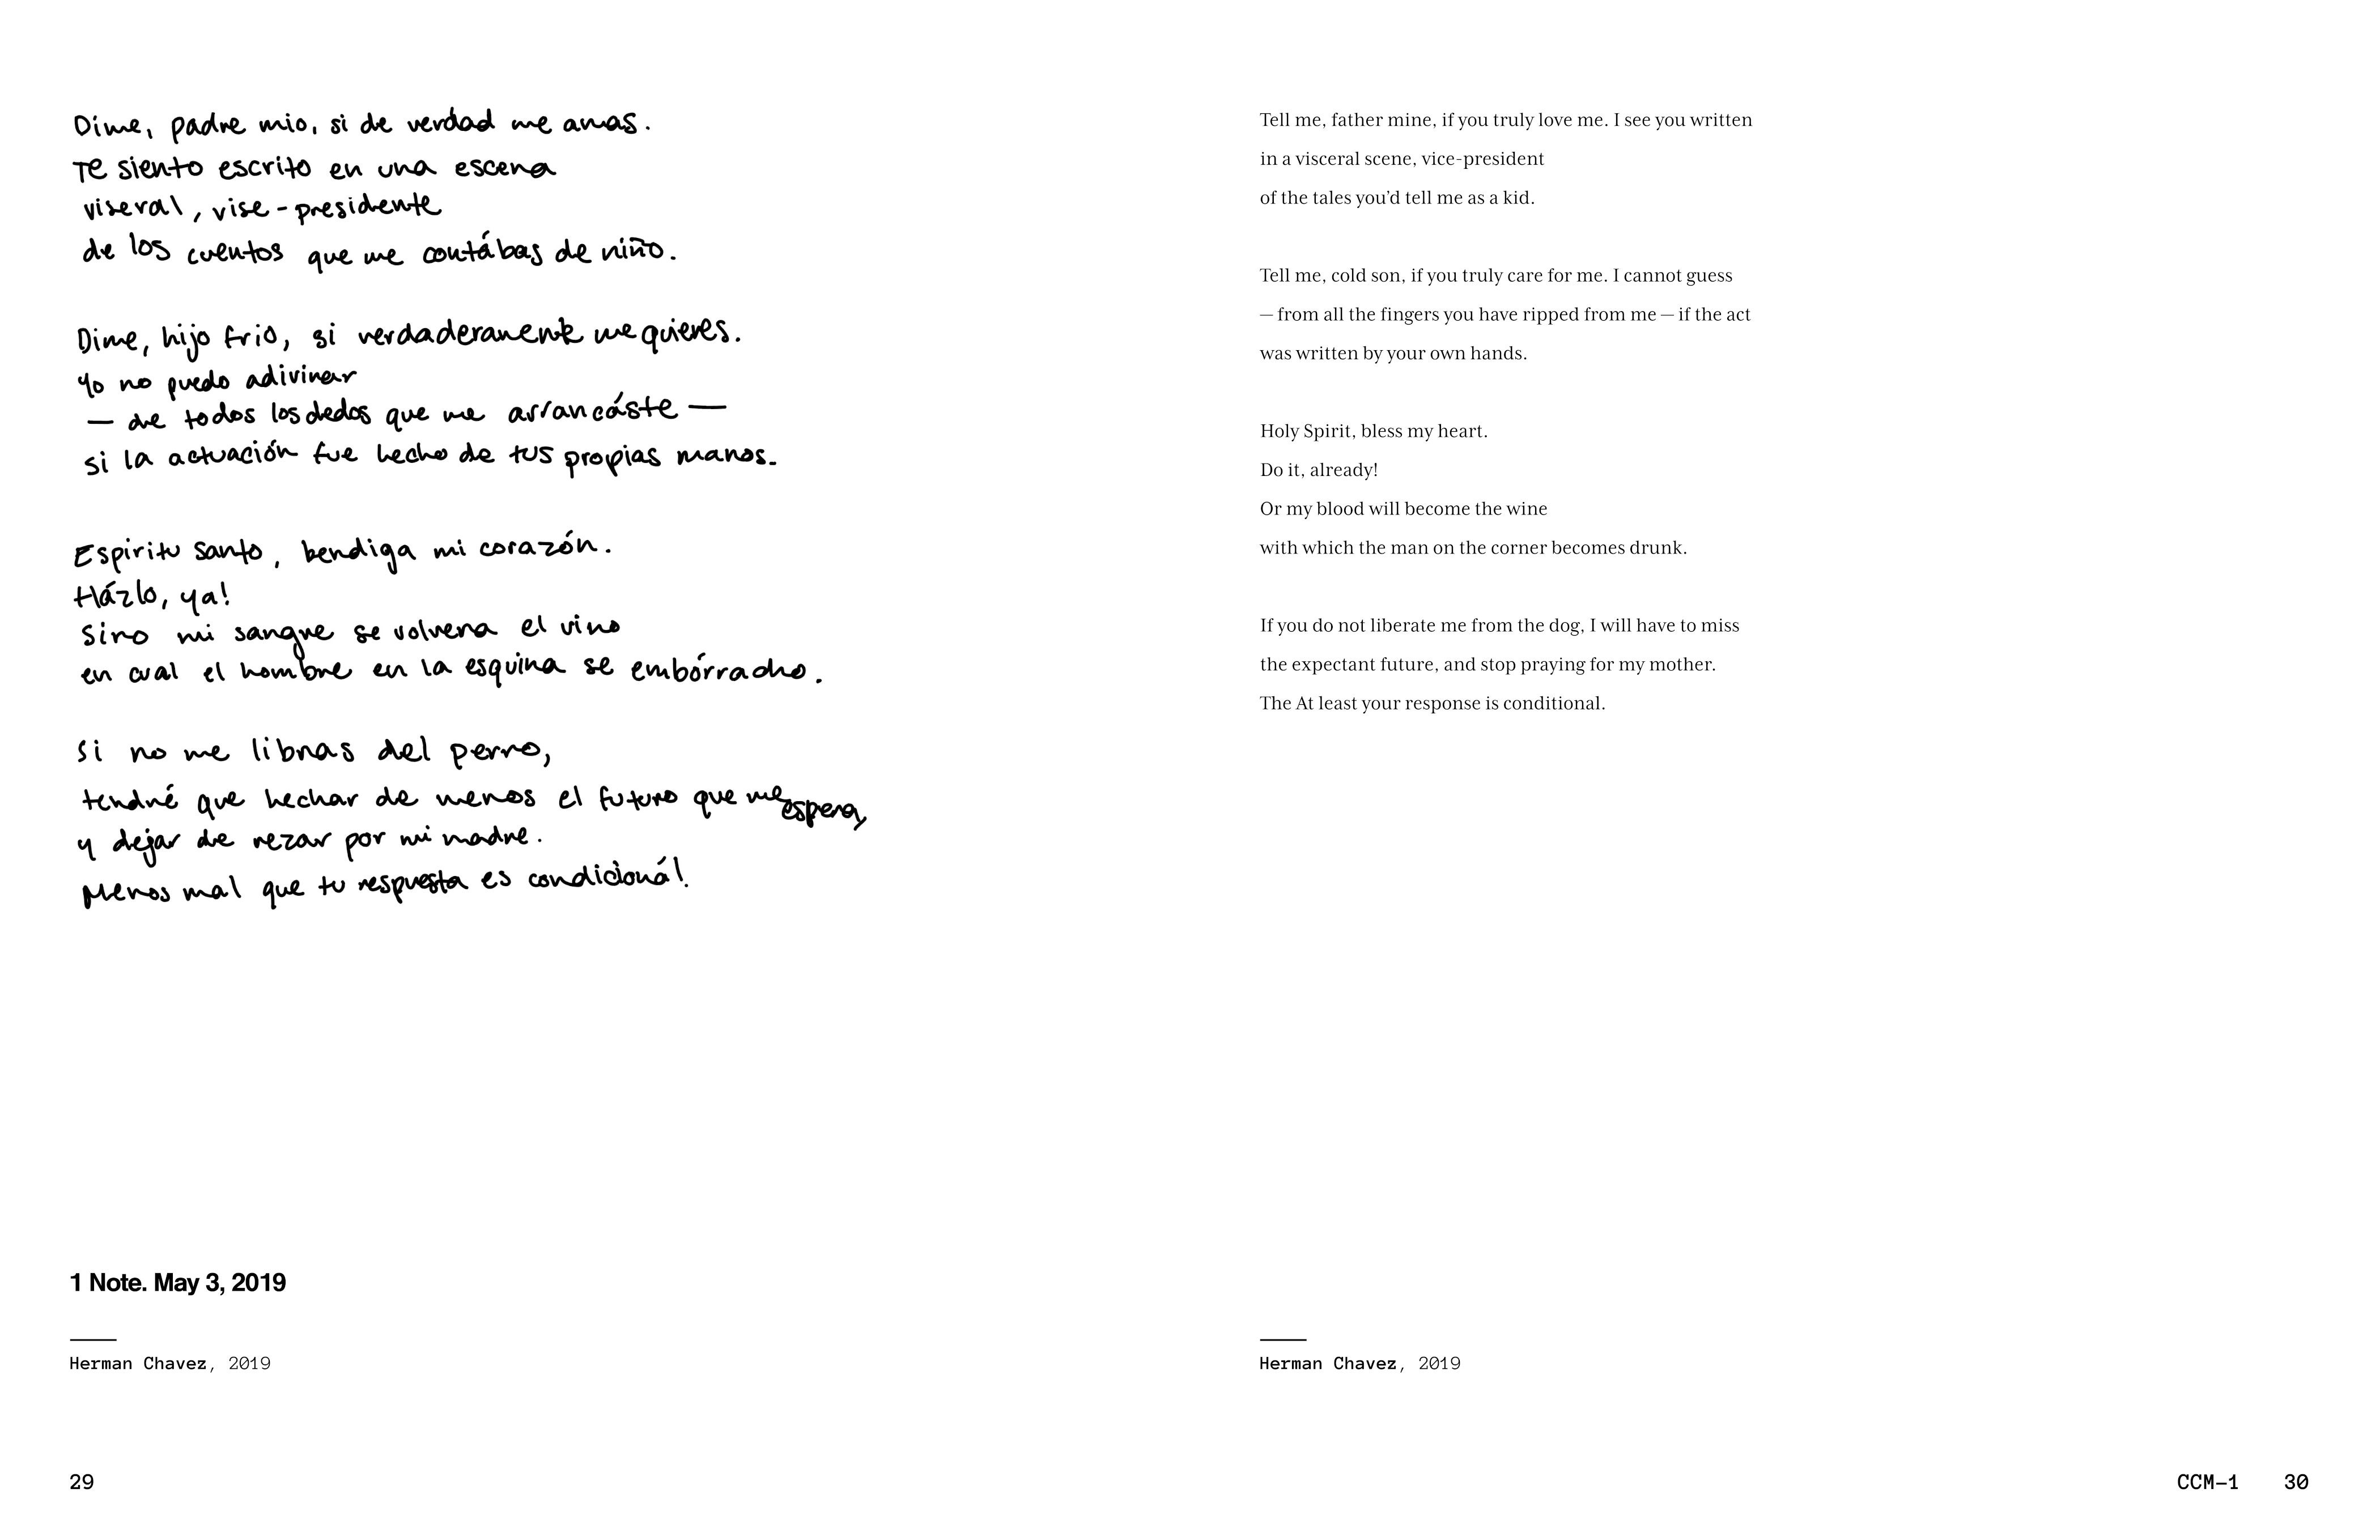 Dime, padre mio, si de verdad me amas.
Te siento escrito en una escena
viseral, vise-presidente
de los cuentos que me contábas de niño.
Dime, hijo frio, si verdaderamente me quieres.
Yo no puedo adivinar
— de todos los dedos que me arrancáste —
si la actuación fue hecho de tus propias manos.
Espiritu santo, bendiga mi corazón.
Házlo, ya!
Sino mi sangre se volvera el vino
en cual el hombre en la esquina se embórracho.
Si no me libras del perro,
tendré que hechar de menos el futuro que me espera,
y dejar de rezar por mi madre.
Menos mal que tu respuesta es condicionál.
1 Note. May 3, 2019
Herman Chavez, 2019
29
Tell me, father mine, if you truly love me. I see you written
in a visceral scene, vice-president
of the tales you’d tell me as a kid.
Tell me, cold son, if you truly care for me. I cannot guess
— from all the fingers you have ripped from me — if the act
was written by your own hands.
Holy Spirit, bless my heart.
Do it, already!
Or my blood will become the wine
with which the man on the corner becomes drunk.
If you do not liberate me from the dog, I will have to miss
the expectant future, and stop praying for my mother.
The At least your response is conditional.
Herman Chavez, 2019
CCM–1 30